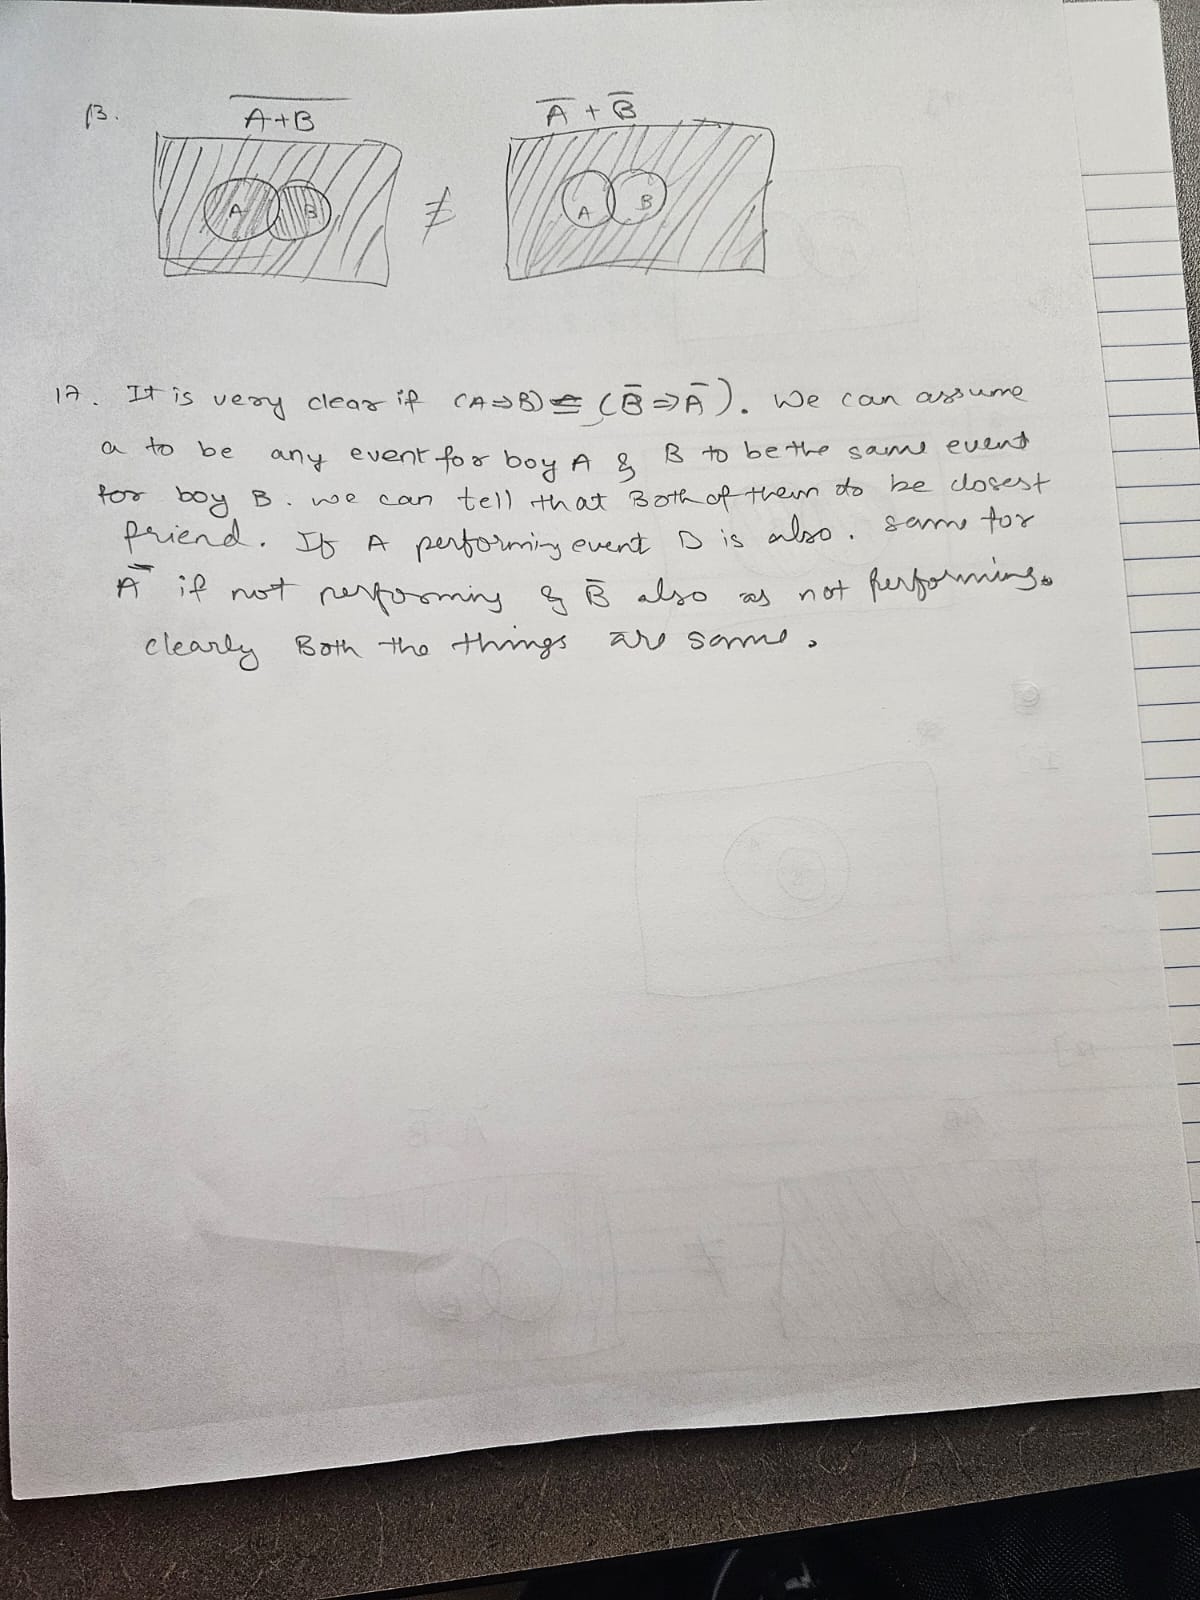 13.
A+B
Ā + B̄
A B ≠ A B
17. It is very clear if (A⇒B) ≡ (B̄ ⇒ Ā). We can assume
a to be any event for boy A & B to be the same event
for boy B. we can tell that Both of them do be closest
friend. If A performing event B is also. same for
Ā if not performing & B̄ also as not performing.
clearly Both the things are same.